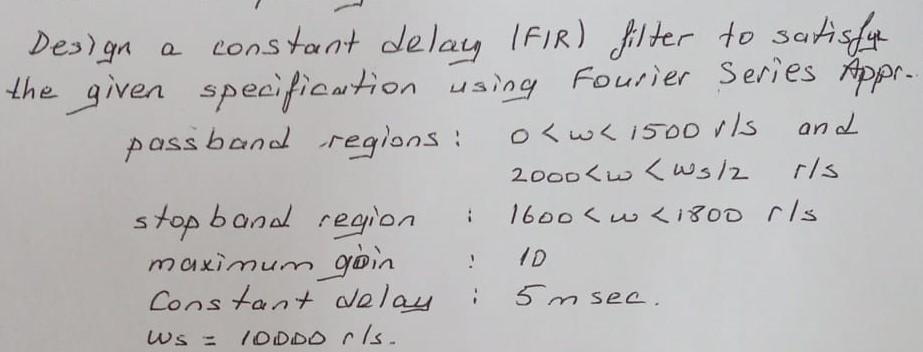 Design a constant delay (FIR) filter to satisfy
the given specification using Fourier Series Appr.
passband regions : 0<w<1500 r/s and
2000<w<ws/2 r/s
stopband region : 1600<w<1800 r/s
maximum gain : 10
Constant delay : 5 m sec.
ws = 10000 r/s.